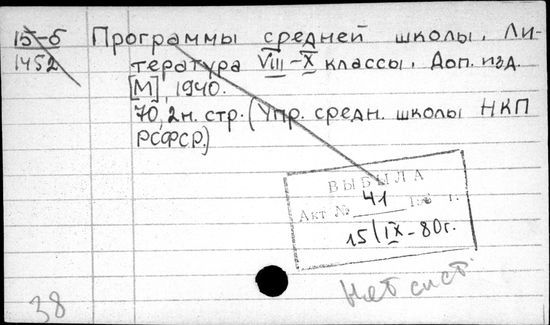 15-5
1452
Программы средней школы. Ли-
тература VIII-X классы. Доп. изд.
[М], 1940.
70, 2 н. стр. (Упр. средн. школы НКП
РСФСР.)
ВЫБЫЛА
Акт № 41 г.
15/IX-80г.
Нет сист.
38